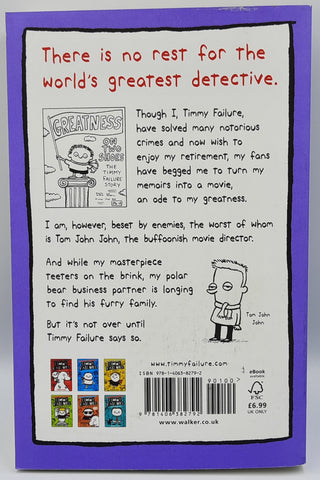 There is no rest for the
world's greatest detective.
GREATNESS
ON TWO
SHOES
THE
TIMMY
FAILURE
STORY
Though I, Timmy Failure,
have solved many notorious
crimes and now wish to
enjoy my retirement, my fans
have begged me to turn my
memoirs into a movie,
an ode to my greatness.
I am, however, beset by enemies, the worst of whom
is Tom John John, the buffoonish movie director.
And while my masterpiece
teeters on the brink, my polar
bear business partner is longing
to find his furry family.
But it's not over until
Timmy Failure says so.
Tom John
John
www.timmyfailure.com
ISBN 978-1-4063-8279-2
90100
9 781406 382792
www.walker.co.uk
eBook
available
FSC
£6.99
UK ONLY